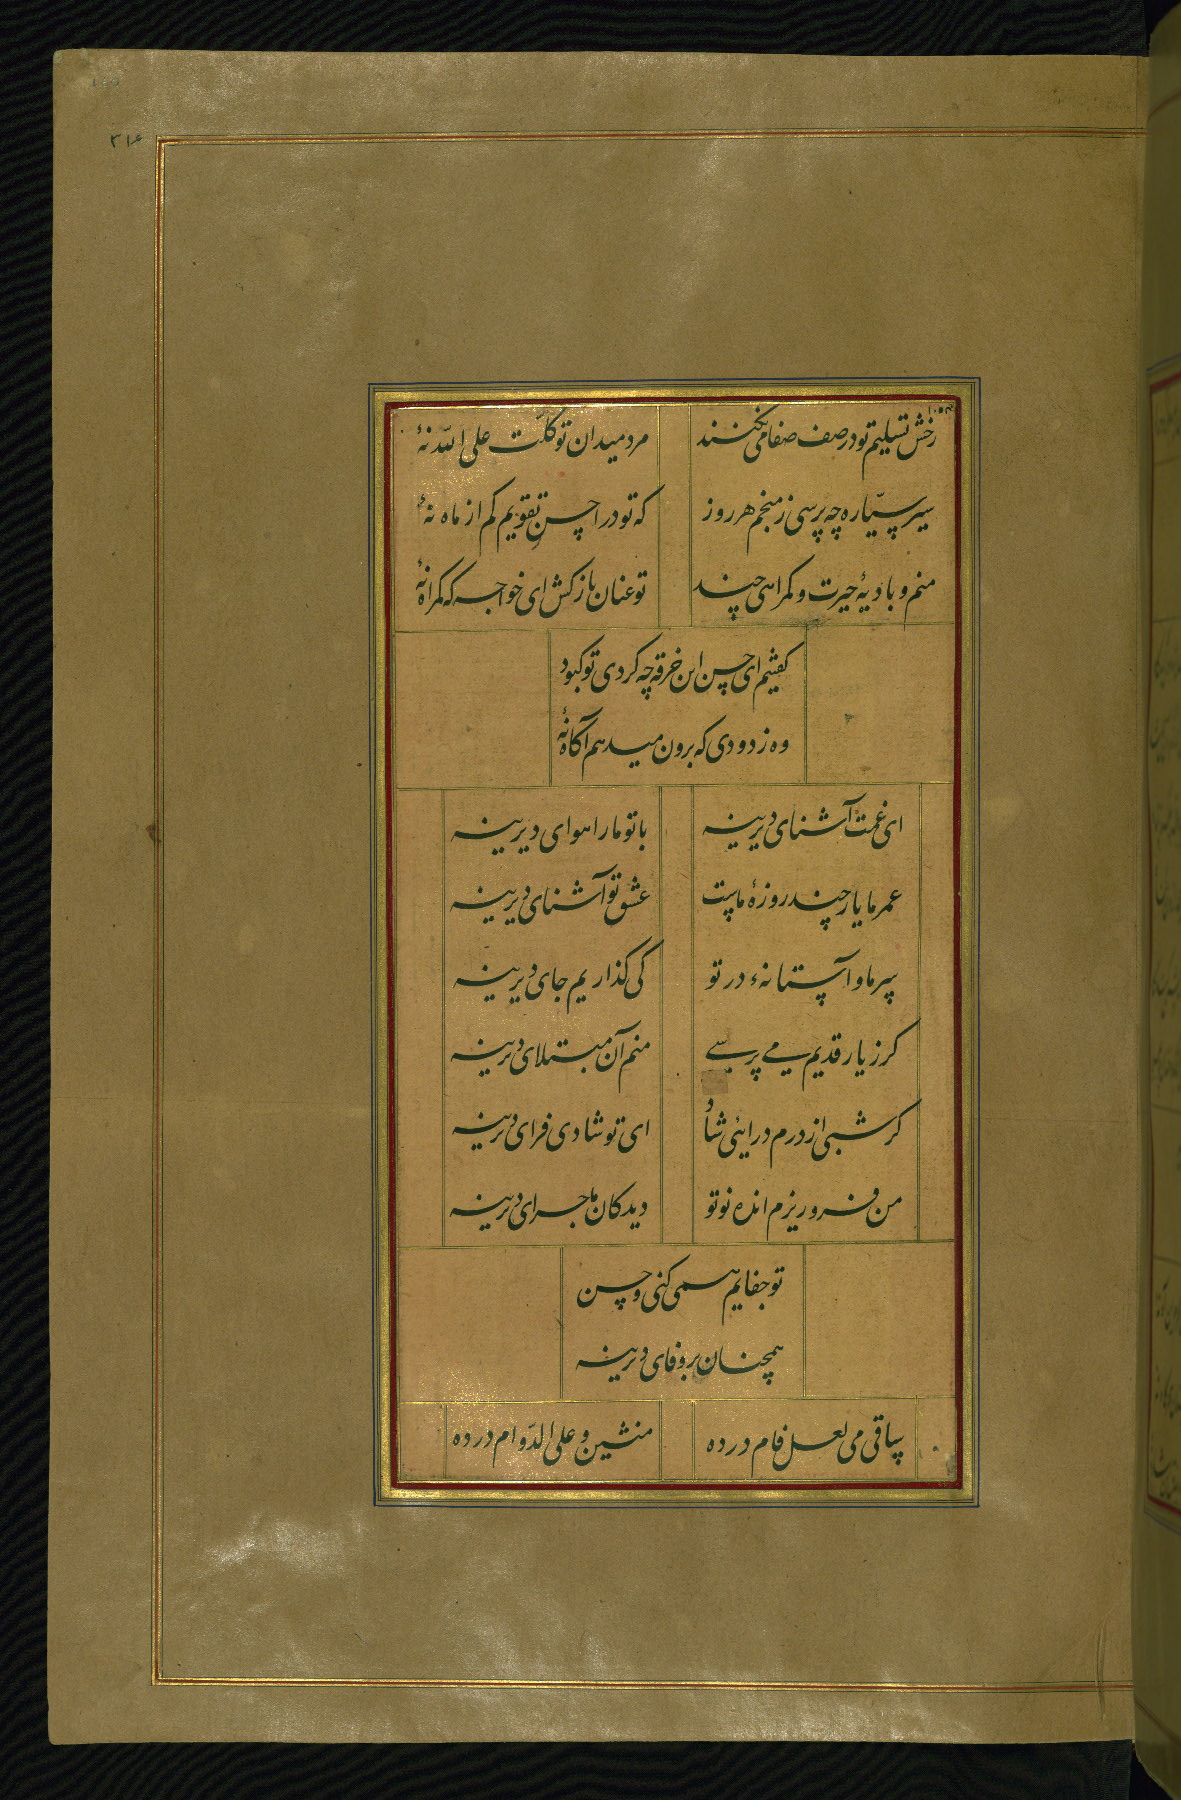 ۳۱۶
رخش تسلیم تو در صف صفا می نکنند
مرد میدان توکلّت علی اللّه نهٔ
سیر سیّاره چه پرسی ز منجم هر روز
که تو در احسنِ تقویم کم از ماه نهٔ
منم و بادیهٔ حیرت و کمراهی چند
تو عنان بازکش ای خواجه که کمراه نهٔ
کفتم ای حسن این خرقه چه کردی تو کبود
وه ز دودی که برون میدهم آکاه نهٔ
ای غمت آشنای دیرینه
با تو ما را هوای دیرینه
عمر ما یار چند روزهٔ ماست
عشق تو آشنای دیرینه
سر ما و آستانهء در تو
کی کذاریم جای دیرینه
کر ز یار قدیم می پرسی
منم آن مبتلای دیرینه
کر شبی از درم درائی شاد
ای تو شادی فزای دیرینه
من فرو ریزم اندُه نو تو
دیدکان ماجرای دیرینه
تو جفایم همی کنی و حسن
همچنان بر وفای دیرینه
ساقی می لعل فام در ده
منشین و علی الدّوام در ده